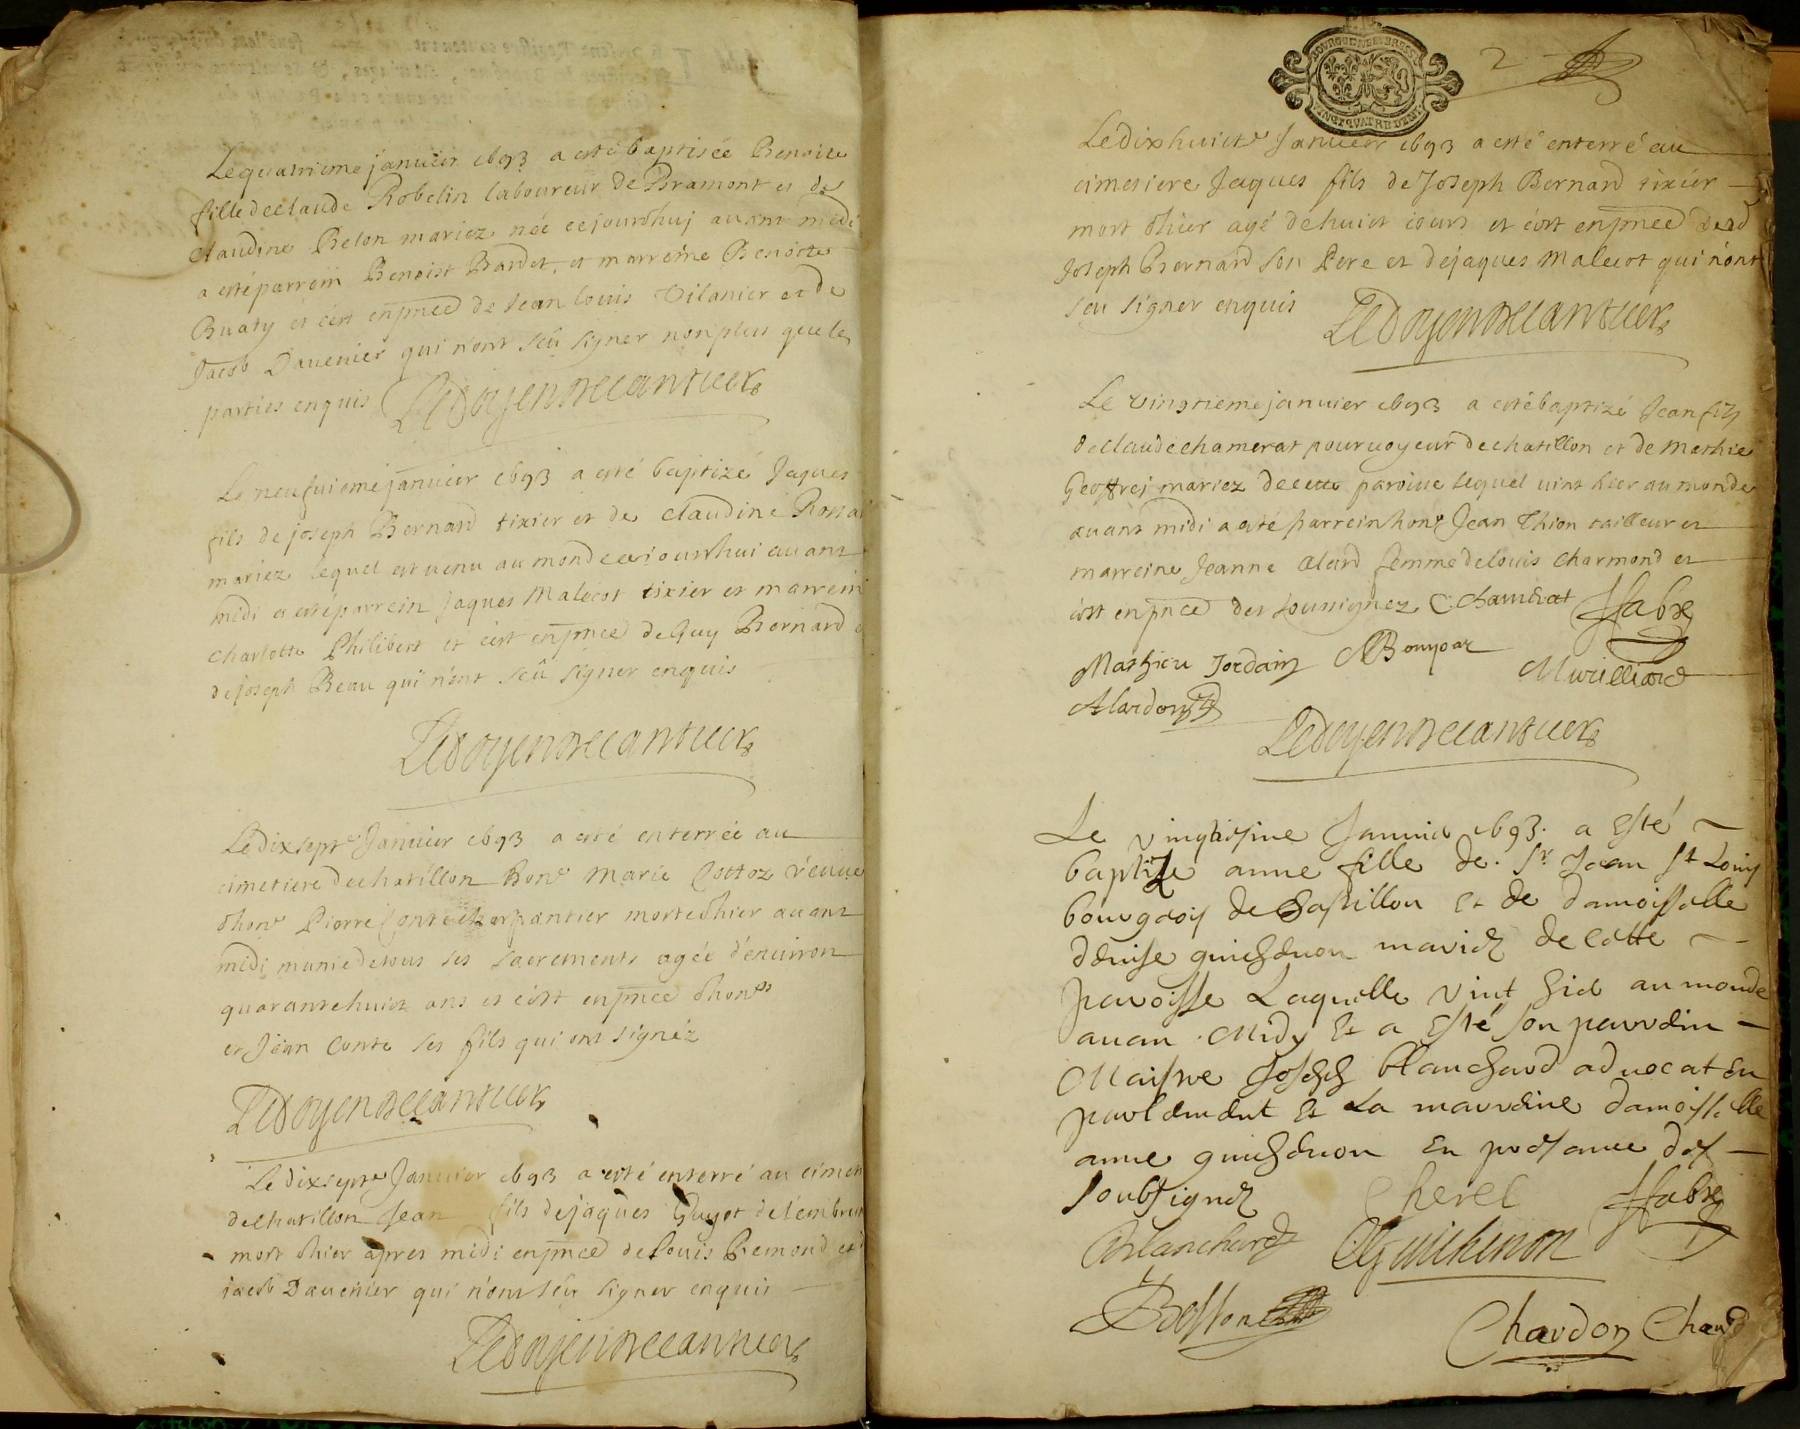 Le quatrieme janvier 1693 a esté baptisée Benoite
fille de claude Robelin laboureur de Bramont et de
claudine Belon mariez née cejourdhuj avant midi
a esté parrein Benoist Bardet, et marreine Benoitte
Buaty et c'est en pñce de Jean louis Vilanier et de
Jacob Davenier qui n'ont seû signer non plus que les
parties enquis Le doyen decanteur
Le neufuieme janvier 1693 a esté baptizé Jaques
fils de joseph Bernard tixier et de claudine
mariez lequel est venu au monde ceiourdhui avant
midi a esté parrein jaques Malecot tixier et marreine
charlotte Philibert et c'est en pñce de Guy Bernard e
de joseph Beau qui n'ont seû signer enquis
Le dixsept.e Janvier 1693 a esté enterrée au
cimetiere de chatillon hon.e Marie Cottoz veuve
d'hon.e Pierre Conte charpantier morte d'hier avant
midi munie de tous ses sacrements agée d'environ
quarante huict ans et c'est en pñce d'hon.es
et Jean Conte ses fils qui ont signéz
Le dixsept.e Janvier 1693 a esté enterré au cimet
de chatillon Jean fils de jaques Guyot de
mort d'hier apres midi en pñce de louis Bremond et
jacob Davenier qui n'ont seû signer enquis
2
VINGT QUATRE DEN
Le dix huict.e Janvier 1693 a esté enterré au
cimetiere Jaques fils de Joseph Bernard tixier
mort d'hier agé de huict iours et c'est en pñce dud
Joseph Bernard son Pere et de jaques Malecot qui n'ont
seu signer enquis
Le vingtieme janvier 1693 a esté baptizé Jean fils
de claude chamerat pourvoyeur de chatillon et de Mathie
Geoffrei mariez de cette paroisse lequel vint hier au monde
avant midi a esté parrein hon.e Jean Thion tailleur et
marreine Jeanne Alard femme de louis charmond et
c'est en pñce des soussignez C Chamerat ffabre
Mathieu Jordain Bonyoar
Alardon
Le vingtiesme Janvier 1693. a esté
baptizee anne fille de. Sr. Jean St Louis
bourgeois de Chastillon Et de damoiselle
denise guichenon mariez de cette
paroisse Laquelle vint hier au monde
avan Midy Et a esté son parrein
Maistre Joseph blanchard advocat en
parlement Et La marreine damoiselle
anne guichenon En presance des
soubsignez Cherel ffabre
Blanchard Guichenon
Besson Chardon